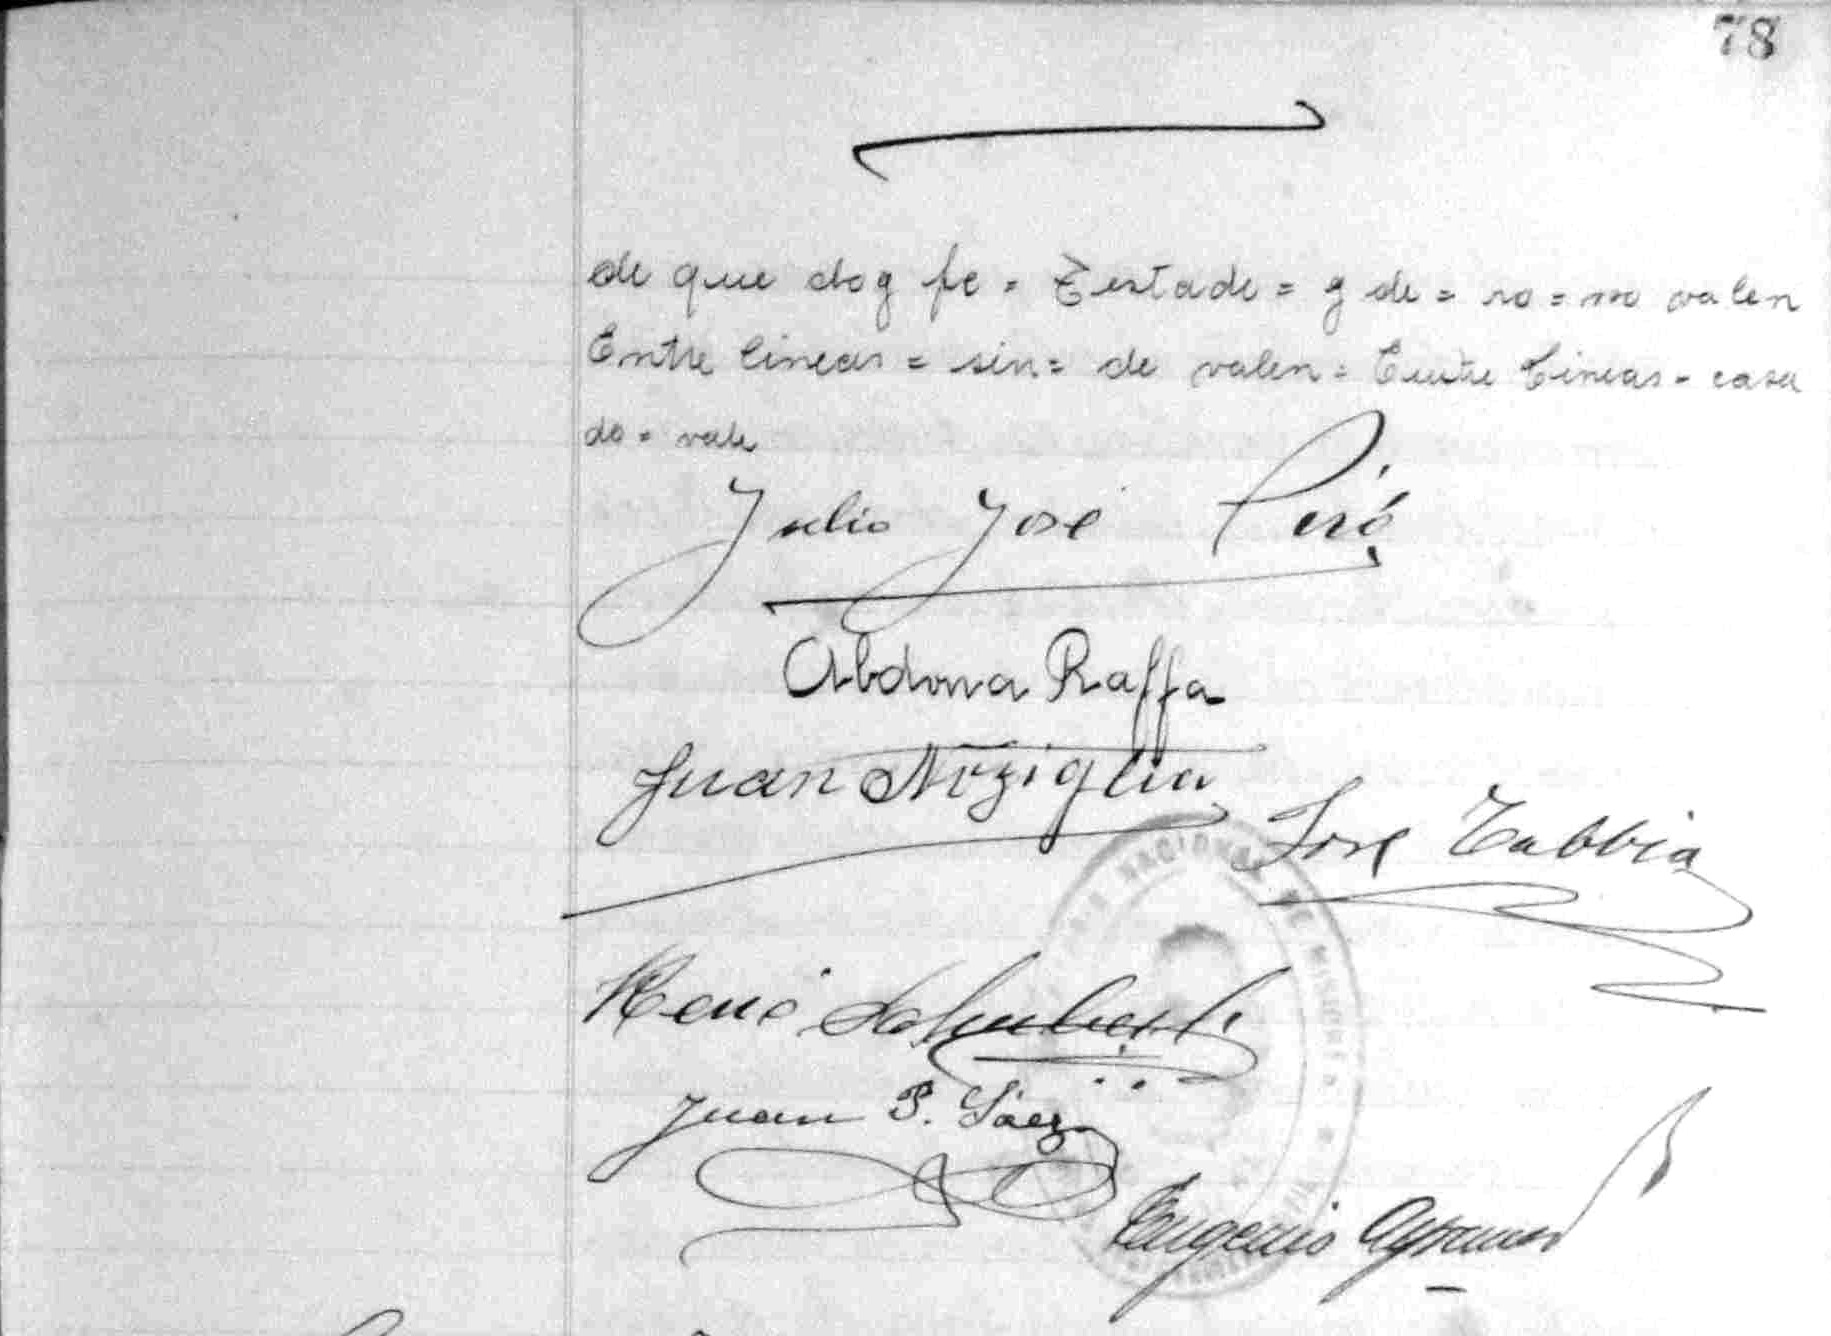 78
de que doy fe = Testade = y de = ro = no valen
Entre lineas = sin = de valen = Entre lineas - casa
do = vale
Julio José Peró
Abdona Raffa
Juan Noziglia
José Tabbia
NACIONAL DE MISIONES
René
Juan P. Sáez
Eugenio